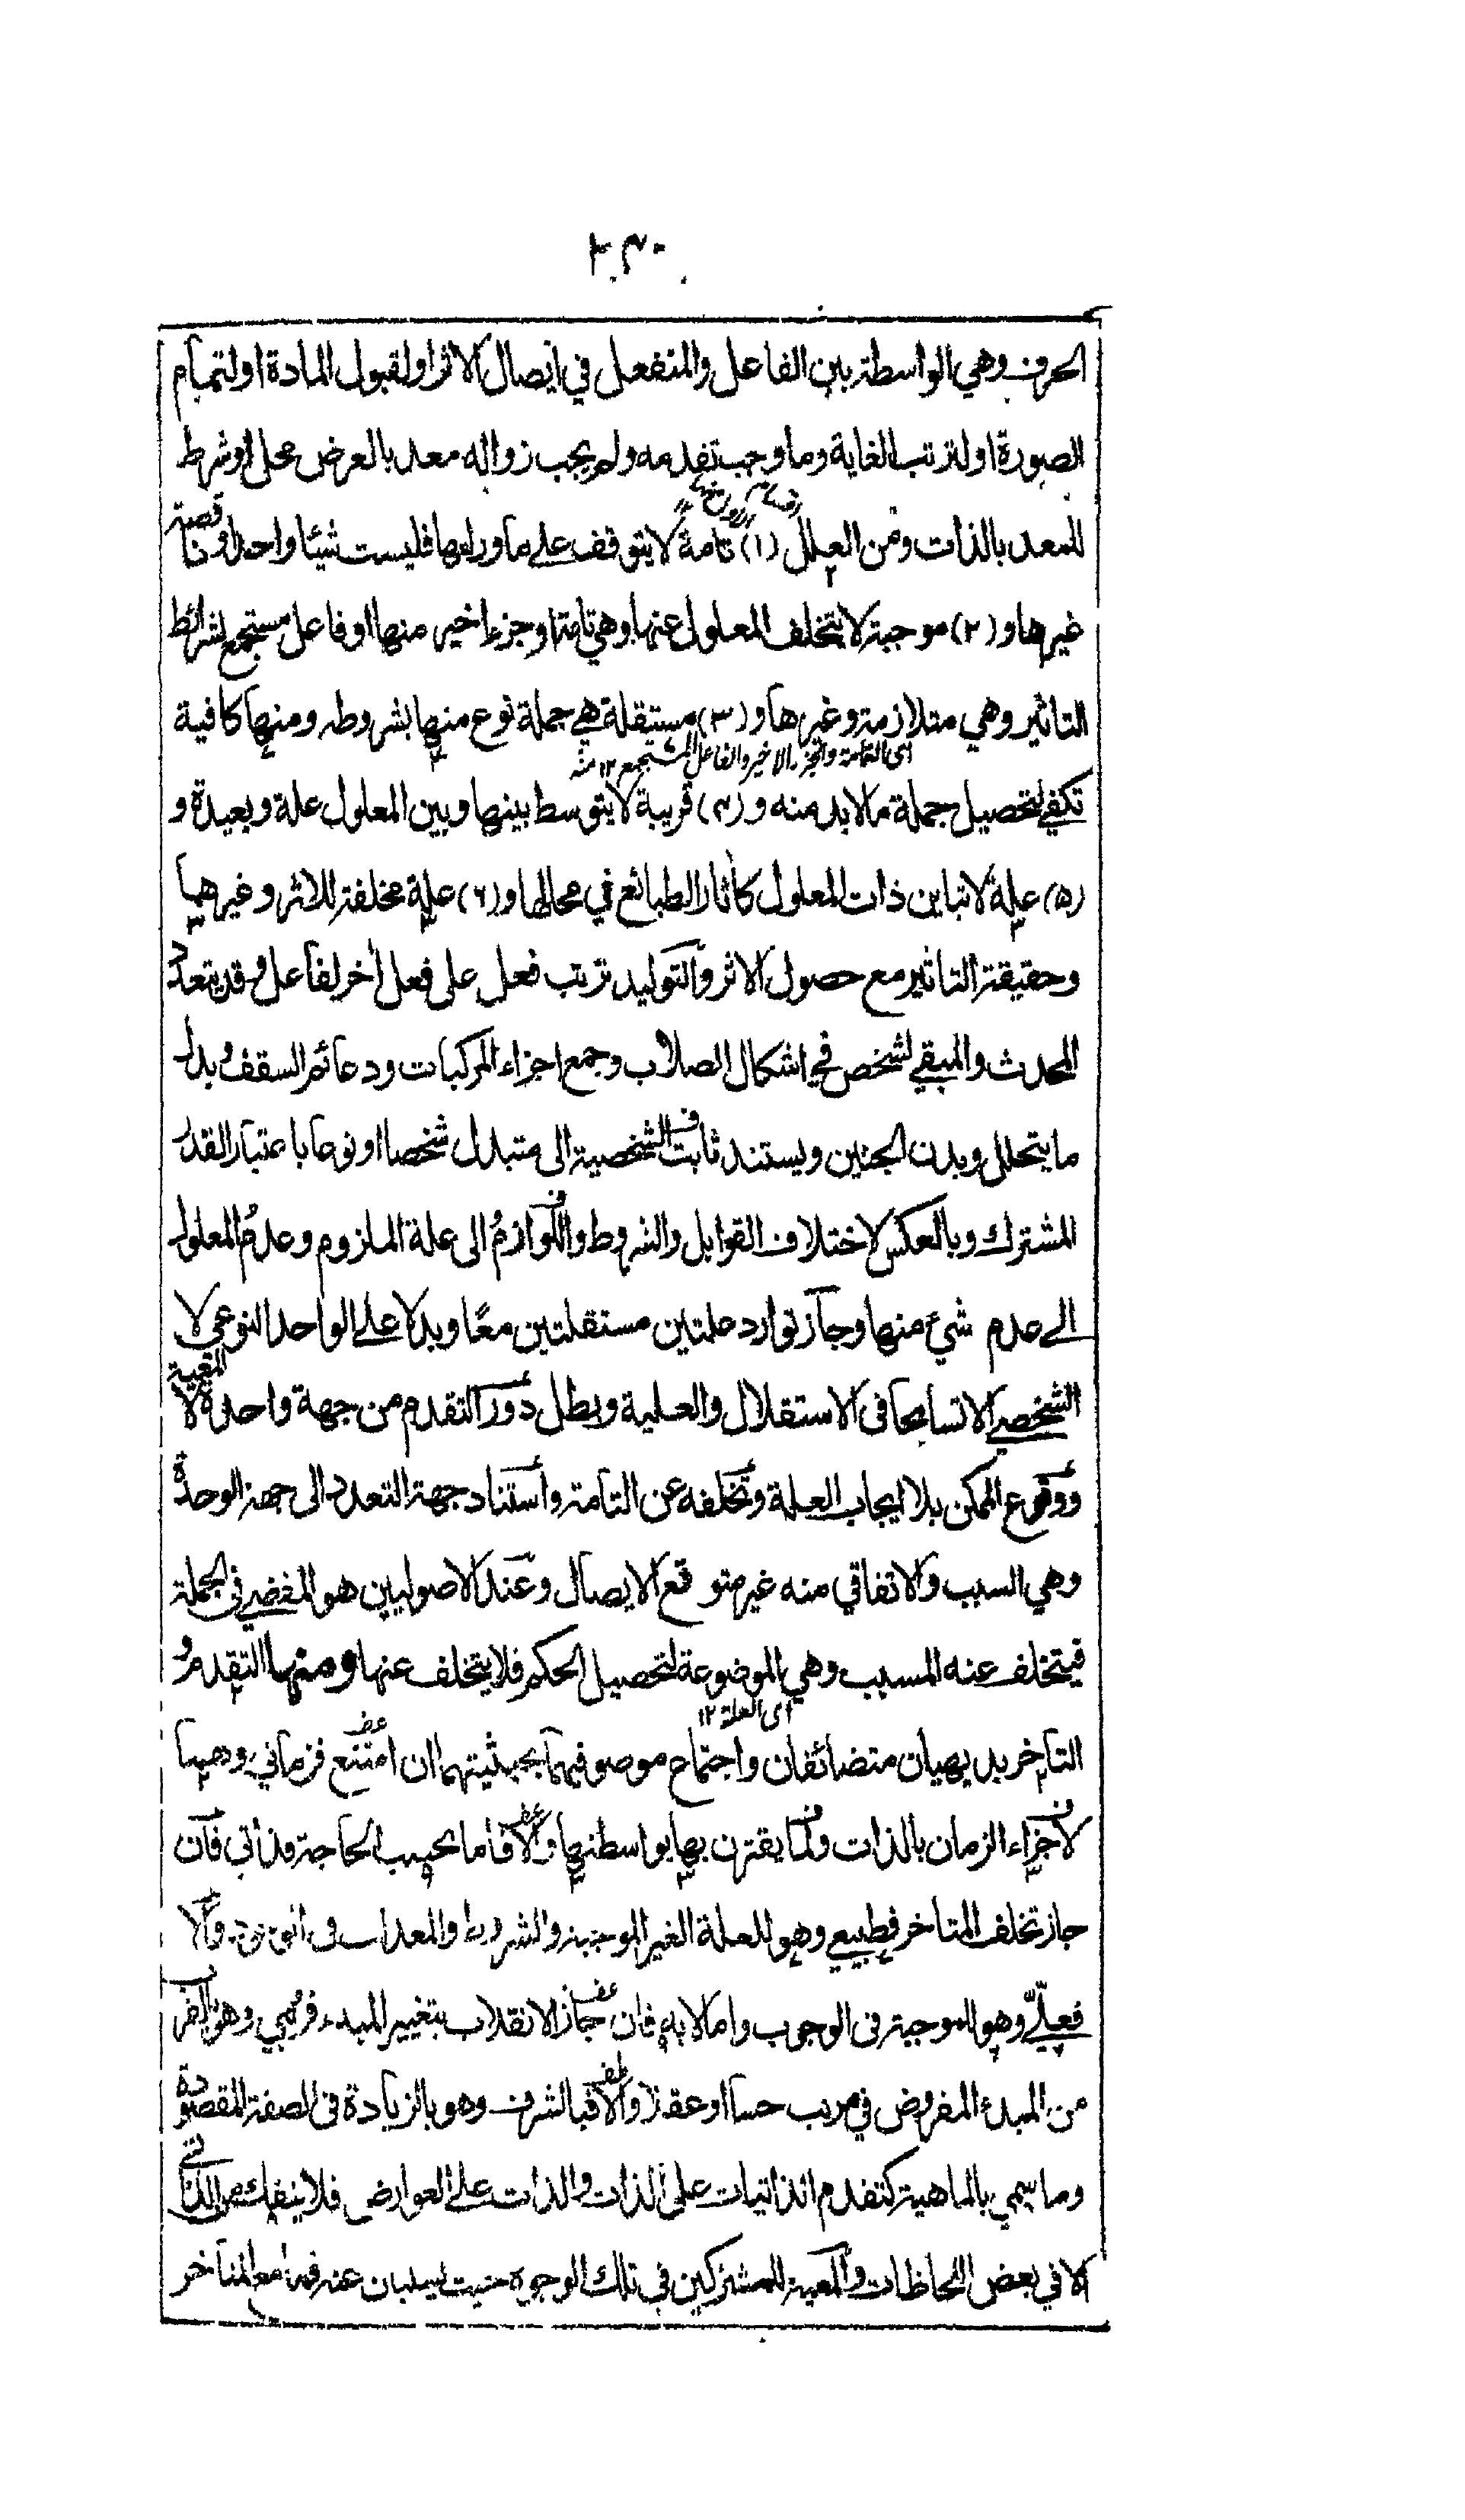 الحرف وهي الواسطة بين الفاعل والمنفعل في ايصال الاثر او لقبول المادة او لتمام
الصورة او لترتب الغاية وما وجب تقدمه ولم يجب زواله معد بالعرض محل او شرط
للمعد بالذات ومن العلل (١) تامة لا يتوقف على ما وراءها فليست شيئا واحدا و ناقصة
غيرها و (٢) موجبة لا يتخلف المعلول عنها وهي تامة او جزء اخير منها او فاعل مستجمع لشرائط
التاثير وهي متلازمة وغيرها و (٣) مستقلة هي جملة نوع منها بشروطه ومنها كافية
اى التامة والجزء الاخير والفاعل المستجمع ١٢ منه
تكفي لتحصيل جملة ما لابد منه و (٤) قريبة لا يتوسط بينها وبين المعلول علة وبعيدة و
(٥) علة لا تباين ذات المعلول كاثار الطبائع في محالها و (٦) علة مخلفة للاثر وغيرهما
وحقيقة التاثير مع حصول الاثر والتوليد ترتب فعل على فعل آخر لفاعل وقد يتعدد
المحدث والمبقي لشخص في اشكال الصلاب وجمع اجزاء المركبات ودعائم السقف وبدل
ما يتحلل وبدن الجنين ويستند ثابت الشخصية الى متبدل شخصا او نوعا باعتبار القدر
المشترك وبالعكس لاختلاف القوابل والشروط واللوازم الى علة الملزوم وعدم المعلول
الى عدم شيء منها وجاز توارد علتين مستقلتين معا وبدلا على الواحد النوعي لا
الشخصي الا تسامحا في الاستقلال والعلية وبطل دور التقدم من جهة واحدة لا المعية
ووقوع الممكن بلا ايجاب العلة وتخلفه عن التامة واستناد جهة التعدد الى جهة الوحدة
وهي السبب والاتفاقي منه غير متوقع الايصال وعند الاصوليين هو المفضي في الجملة
فيتخلف عنه المسبب وهي الموضوعة لتحصيل الحكم فلا يتخلف عنها ومنها التقدم و
اى العلة ١٢
التاخر بديهيان متضائفان واجتماع موصوفيهما بحيثيتهما ان امتنع فزماني وهما
لاجزاء الزمان بالذات ولما يقترن بها بواسطتها والا فاما بحسب الحاجة فذاتي فان
جاز تخلف المتاخر فطبيعي وهو للعلة الغير الموجبة والشروط والمعدات في والا
فعلّيّ وهو للموجبة في الوجوب واما لا به فان جاز الانقلاب بتغيير المبدء فرتبي وهو القرب
من المبدء المفروض في مرتب حسا او عقلا والا فبالشرف وهو بالزيادة في الصفة المقصودة
وما سمي بالماهية كتقدم الذاتيات على الذات والذات على العوارض فلا ينفك من الذاتي
الا في بعض اللحاظات والمعية للمشتركين في تلك الوجوه حيث يسلبان عنه مع المتاخر